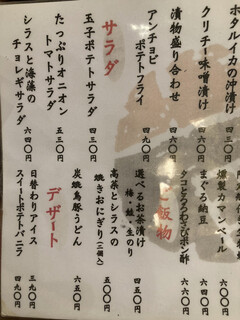 ホタルイカの沖漬け
クリチー味噌漬け
漬物盛り合わせ
アンチョビ
ポテトフライ
四九〇円
サラダ
玉子ポテトサラダ
四三〇円
たっぷりオニオン
トマトサラダ
五三〇円
シラスと海藻の
チョレギサラダ
六四〇円
燻製カマンベール
まぐろ納豆
タコととろろわさびポン酢
ご飯物
選べるお茶漬け
梅・鮭・生のり
四五〇円
高菜とシラスの
焼きおにぎり(二個入)
六五〇円
炭焼鳥豚うどん
六五〇円
デザート
日替わりアイス
三九〇円
スイートポテトバニラ
四九〇円